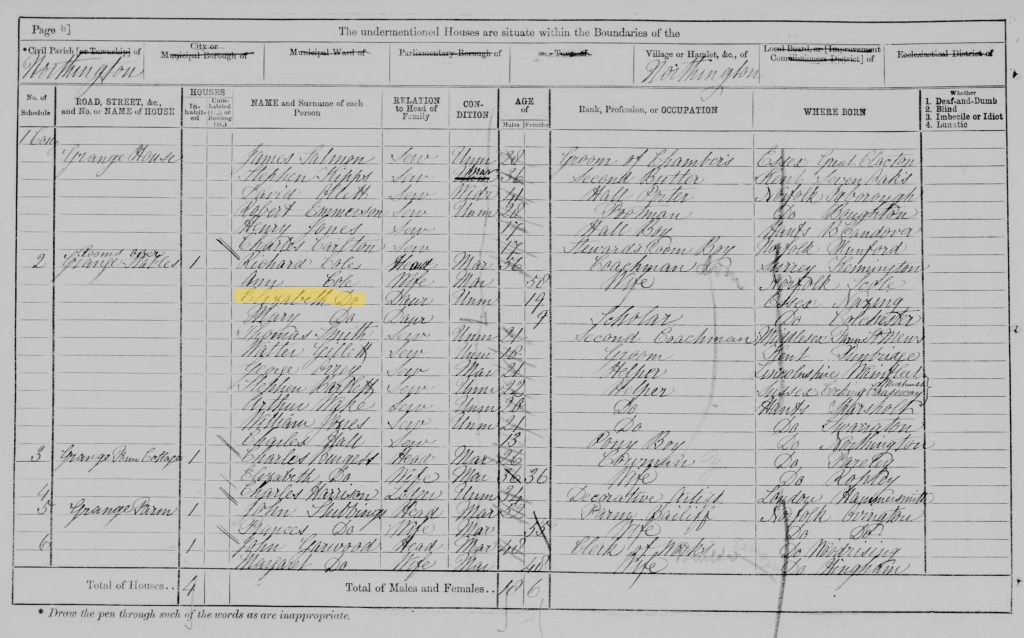 Page 8]
The undermentioned Houses are situate within the Boundaries of the
*Civil Parish [or Township] of
City or Municipal Borough of
Municipal Ward of
Parliamentary Borough of
Town of
Village or Hamlet, &c., of
Local Board, or [Improvement Commissioners District] of
Ecclesiastical District of
Northington Northington
No. of Schedule
ROAD, STREET, &c., and No. or NAME of HOUSE
HOUSES
Inhabited
NAME and Surname of each Person
RELATION to Head of Family
CONDITION
AGE of
Males Females
Rank, Profession, or OCCUPATION
WHERE BORN
Whether
1. Deaf-and-Dumb
2. Blind
3. Imbecile or Idiot
4. Lunatic
Grange House James Salmon Serv Unm 28 Groom of Chambers Essex Great Clacton
Stephen Serv Mar 36 Second Butler Kent Seven Oaks
David Serv Widr Hall Porter Norfolk
Robert Emmerson Serv Unm 28 Footman Do Boughton
Henry Jones Serv 17 Hall Boy Hants B Candover
Charles Carlton Serv 17 Stewards Room Boy Norfolk Munford
2 Rooms over Grange Stables 1 Richard Cole Head Mar 56 Coachman Surrey Kennington
Ann Cole Wife Mar 58 Wife Norfolk Scole
Elizabeth Do Daur Unm 19 Essex Nazing
Mary Do Daur 9 Scholar Do Colchester
Thomas Smith Serv Unm 21 Second Coachman Middlesex
Walter Gillett Serv Unm 18 Groom Kent Tunbridge
George Serv Mar 21 Helper Lincolnshire
Stephen Bartlett Serv Unm 22 Helper Sussex
Arthur Wake Serv Unm 30 Do Hants
William Jones Serv Unm 21 Do Do Swarraton
Charles Hall Serv 13 Pony Boy Do Northington
3 Grange Cottage 1 Charles Burgess Head Mar 26 Do
Elizabeth Do Wife Mar 36 36 Wife Do Ropley
4 Charles Harrison Unm 34 Decorative Artist London Hammersmith
5 Grange Farm 1 John Stubbings Head Mar 52 Farm Bailiff Norfolk Ovington
Frances Do Wife Mar 55 Wife Do Do
6 1 John Garwood Head Mar 48 Clerk of Works Do Woodrising
Margaret Do Wife Mar 48 Wife Do Hingham
Total of Houses.. 4 Total of Males and Females.. 18 6
* Draw the pen through such of the words as are inappropriate.